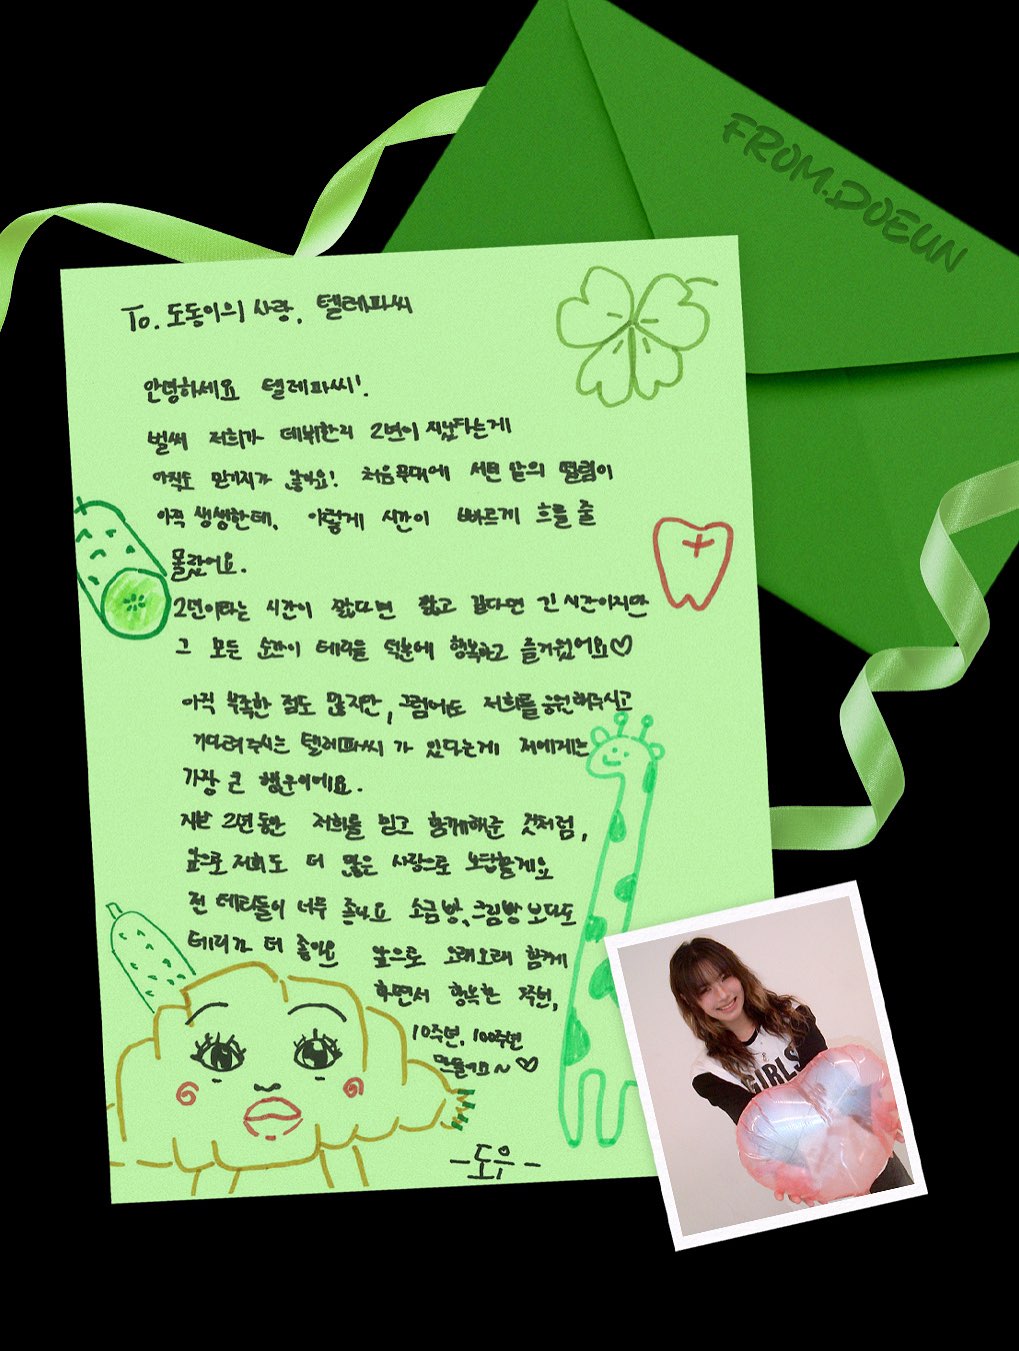 FROM.DOEUN
To. 도동이의 사랑. 텔레파씨
안녕하세요 텔레파씨!
벌써 저희가 데뷔한지 2년이 지났다는게
아직도 믿기지가 않아요! 처음 무대에 서던 날의 떨림이
아직 생생한데, 이렇게 시간이 빠르게 흐를 줄
몰랐어요.
2년이라는 시간이 짧다면 짧고 길다면 긴 시간이지만
그 모든 순간이 테리들 덕분에 행복하고 즐거웠어요♡
아직 부족한 점도 많지만, 그럼에도 저희를 응원해주시고
기다려주시는 텔레파씨가 있다는게 저에게는
가장 큰 행운이에요.
지난 2년동안 저희를 믿고 함께해준 것처럼,
앞으로 저희도 더 많은 사랑으로 보답할게요
전 테리들이 너무 좋아요 소금빵, 크림빵보다도
테리가 더 좋아요 앞으로 오래오래 함께
하면서 행복한 작번,
10주년, 100주년
만들기요~♡
-도은-
GIRLS